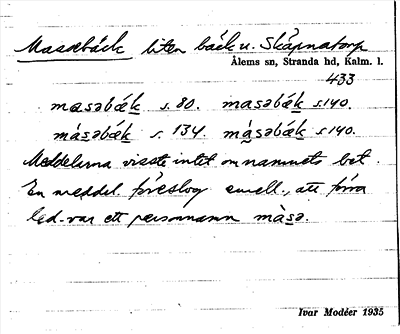 Masabäck liten bäck v. Skäpnatorp
Ålems sn, Stranda hd, Kalm. l.
433
masəbæk s. 80. masəbák s. 140.
másəbǽk s. 134. màsəbák s. 140.
Meddelerna visste intet om namnets bet.
En meddel. föreslog emell., att förra
led. var ett personnamn màsə.
Ivar Modéer 1935